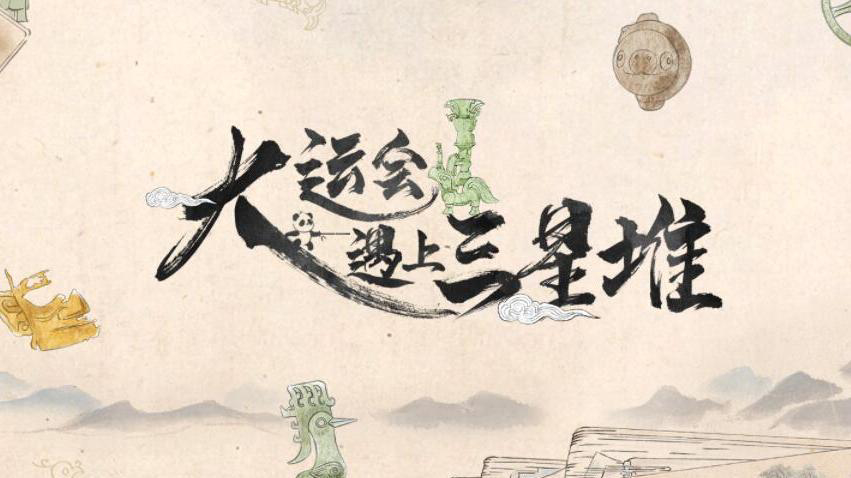 大运会
遇上三星堆